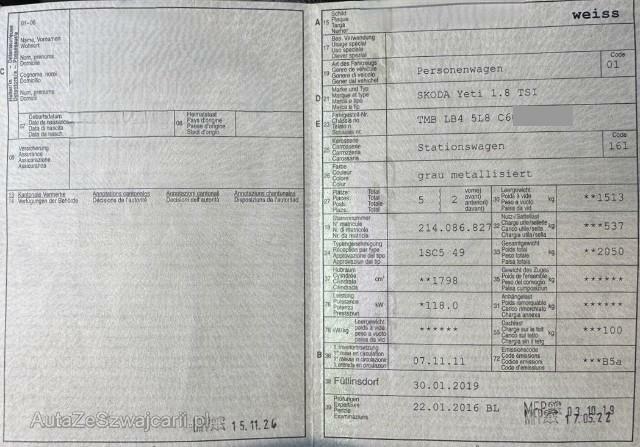 C
01-06
Name, Vornamen
Wohnort
Nom, prénoms
Domicile
Cognome, nomi
Domicilio
Num, prenums
Domicil
07
Geburtsdatum
Date de naissance
Data di nascita
Data da nasch.
08
Heimatstaat
Pays d'origine
Paese d'origine
Stadi d'origin
09
Versicherung
Assurance
Assicurazione
Assicuranza
13
14
Kantonale Vermerke
Verfügungen der Behörde
Annotations cantonales
Décisions de l'autorité
Annotazioni cantonali
Decisioni dell'autorità
Annotaziuns chantunalas
Disposiziuns da l'autoritad
AutaZeSzwajcarii.pl
15.11.24
A
15
Schild
Plaque
Targa
Numer
weiss
17
Bes. Verwendung
Usage spécial
Uso speciale
Diever spezial
19
Art des Fahrzeugs
Genre de véhicule
Genere di veicolo
Gener dal vehichel
Personenwagen
Code
01
D
21
Marke und Typ
Marque et type
Marca e tipo
Marca e tip
SKODA Yeti 1.8 TSI
E
23
Fahrgestell-Nr.
Châssis no
Telaio n.
Schassis nr.
TMB LB4 5L8 C6
25
Karosserie
Carrosserie
Carrozzeria
Carossaria
Stationswagen
Code
161
26
Farbe
Couleur
Colore
Colur
grau metallisiert
27
Plätze: Total
Places: Total
Posti: Totale
Plazs: Total
5 2
vorne)
avant)
anteriori)
davant)
30
Leergewicht
Poids à vide
Peso a vuoto
Paisa da vid
kg
**1513
18
Stammnummer
N° matricule
N. di matricola
Nr. da matricla
214.086.827
32
Nutz-/Sattellast
Charge utile/sellette
Carico utile/sella
Chargia utila/sella
kg
***537
24
Typengenehmigung
Réception par type
Approvazione del tipo
Approvaziun dal tip
1SC5 49
33
Gesamtgewicht
Poids total
Peso totale
Paisa totala
kg
**2050
37
Hubraum
Cylindrée
Cilindrata
Cilindrada
cm³
**1798
35
Gewicht des Zuges
Poids de l'ensemble
Peso del convoglio
Paisa cumposiziun
kg
******
76
Leistung
Puissance
Potenza
Prestaziun
kW
*118.0
31
Anhängelast
Poids remorquable
Carico rimorchiato
Chargia annexa
kg
******
78
kW/kg
Leergewicht
poids à vide
peso a vuoto
paisa da vid
******
55
Dachlast
Charge sur le toit
Carico sul tetto
Chargia sin il tetg
kg
***100
B
36
1. Inverkehrsetzung
1ère mise en circulation
1a messa in circolazione
1. entrada en circulaziun
07.11.11
72
Emissionscode
Code émissions
Codice emissioni
Code d'emissiuns
***B5a
38
Füllinsdorf
30.01.2019
39
Prüfungen
Expertises
Perizie
Examinaziuns
22.01.2016 BL
MFP
03.10.19
17.05.22